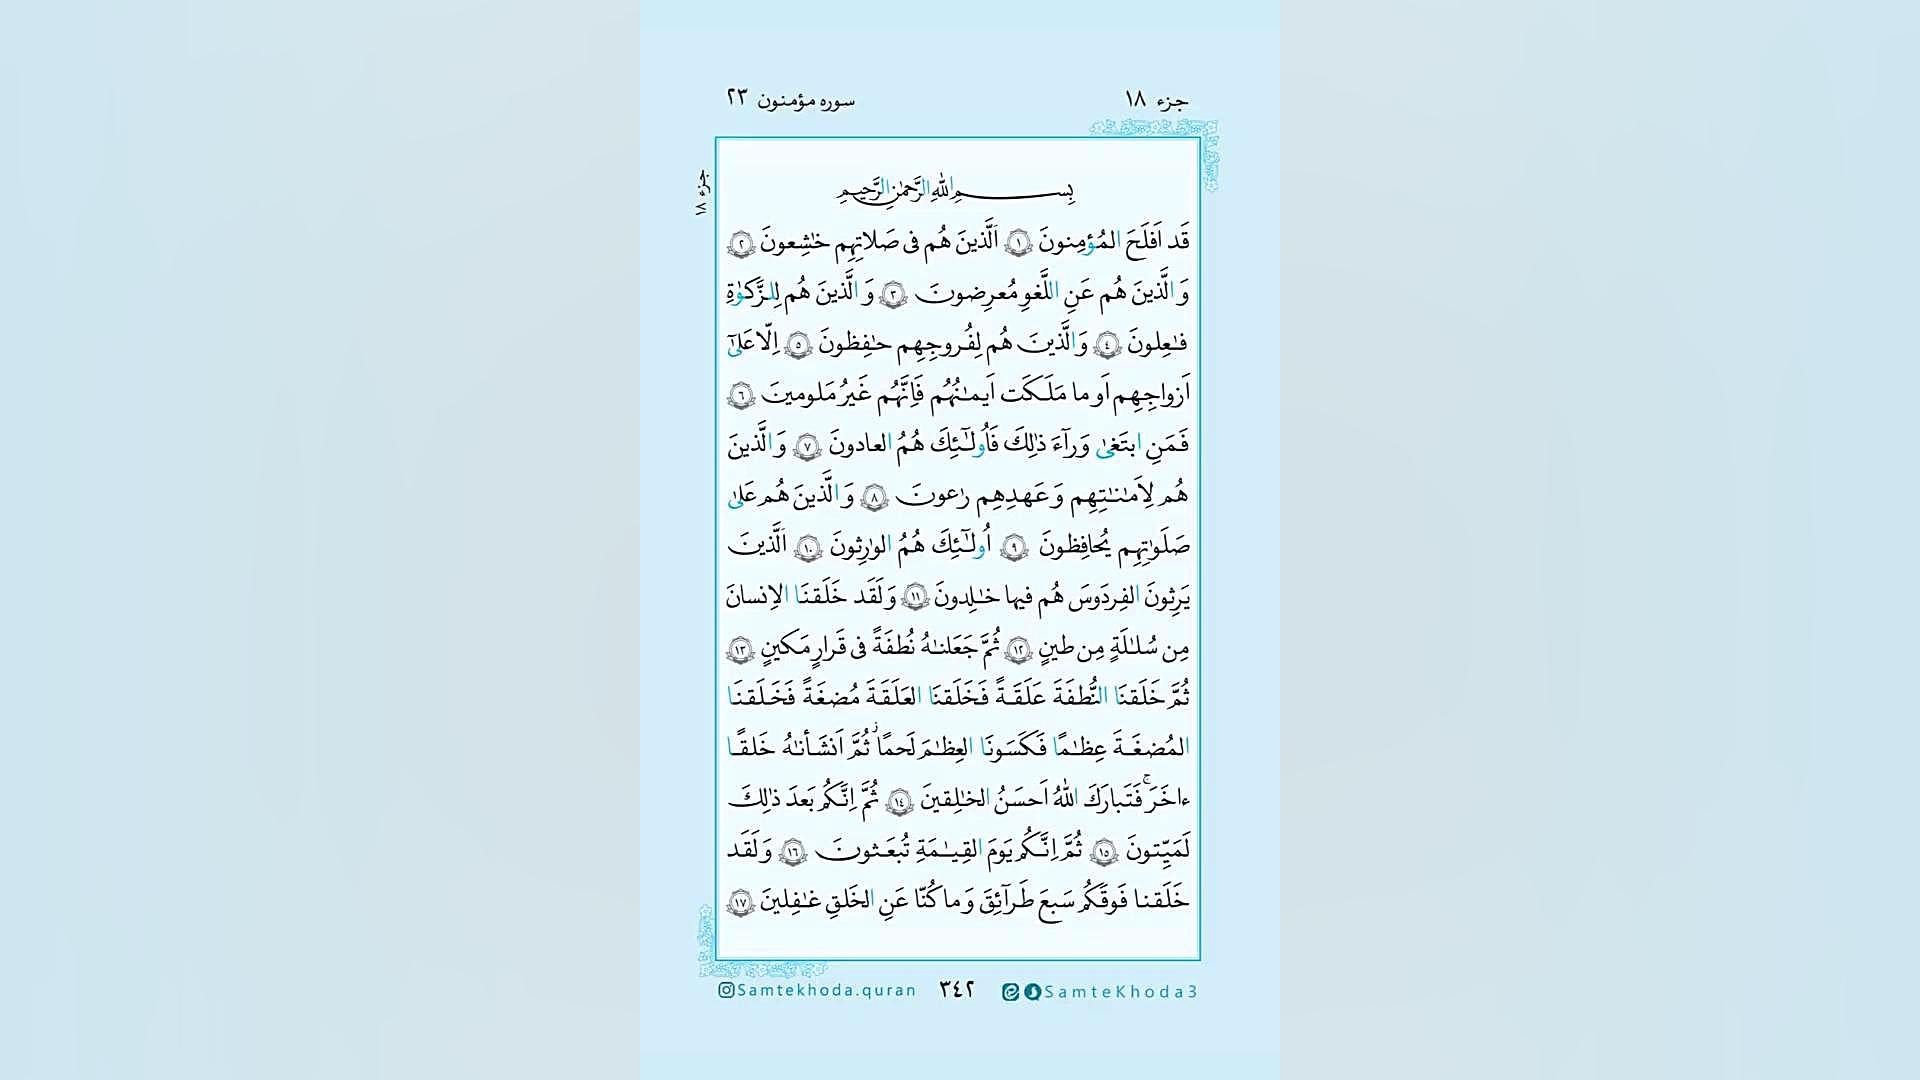 جزء ۱۸
سوره مؤمنون ۲۳
جزء ۱۸
بِسمِ اللّٰهِ الرَّحمٰنِ الرَّحيمِ
قَد اَفلَحَ المُؤمِنونَ ﴿١﴾ اَلَّذينَ هُم فى صَلاتِهِم خٰشِعونَ ﴿٢﴾
وَالَّذينَ هُم عَنِ اللَّغوِ مُعرِضونَ ﴿٣﴾ وَالَّذينَ هُم لِلزَّكوٰةِ
فٰعِلونَ ﴿٤﴾ وَالَّذينَ هُم لِفُروجِهِم حٰفِظونَ ﴿٥﴾ اِلّا عَلىٰٓ
اَزواجِهِم اَو ما مَلَكَت اَيمٰنُهُم فَاِنَّهُم غَيرُ مَلومينَ ﴿٦﴾
فَمَنِ ابتَغىٰ وَرآءَ ذٰلِكَ فَاُولٰٓئِكَ هُمُ العادونَ ﴿٧﴾ وَالَّذينَ
هُم لِاَمٰنٰتِهِم وَعَهدِهِم رٰعونَ ﴿٨﴾ وَالَّذينَ هُم عَلىٰ
صَلَوٰتِهِم يُحافِظونَ ﴿٩﴾ اُولٰٓئِكَ هُمُ الوٰرِثونَ ﴿١٠﴾ اَلَّذينَ
يَرِثونَ الفِردَوسَ هُم فيها خٰلِدونَ ﴿١١﴾ وَلَقَد خَلَقنَا الاِنسانَ
مِن سُلٰلَةٍ مِن طينٍ ﴿١٢﴾ ثُمَّ جَعَلنٰهُ نُطفَةً فى قَرارٍ مَكينٍ ﴿١٣﴾
ثُمَّ خَلَقنَا النُّطفَةَ عَلَقَةً فَخَلَقنَا العَلَقَةَ مُضغَةً فَخَلَقنَا
المُضغَةَ عِظٰمًا فَكَسَونَا العِظٰمَ لَحمًا ۫ ثُمَّ اَنشَأنٰهُ خَلقًا
ءاخَرَ ۚ فَتَبارَكَ اللّٰهُ اَحسَنُ الخٰلِقينَ ﴿١٤﴾ ثُمَّ اِنَّكُم بَعدَ ذٰلِكَ
لَمَيِّتونَ ﴿١٥﴾ ثُمَّ اِنَّكُم يَومَ القِيٰمَةِ تُبعَثونَ ﴿١٦﴾ وَلَقَد
خَلَقنا فَوقَكُم سَبعَ طَرآئِقَ وَما كُنّا عَنِ الخَلقِ غٰفِلينَ ﴿١٧﴾
Samtekhoda.quran
٣٤٢
SamteKhoda3